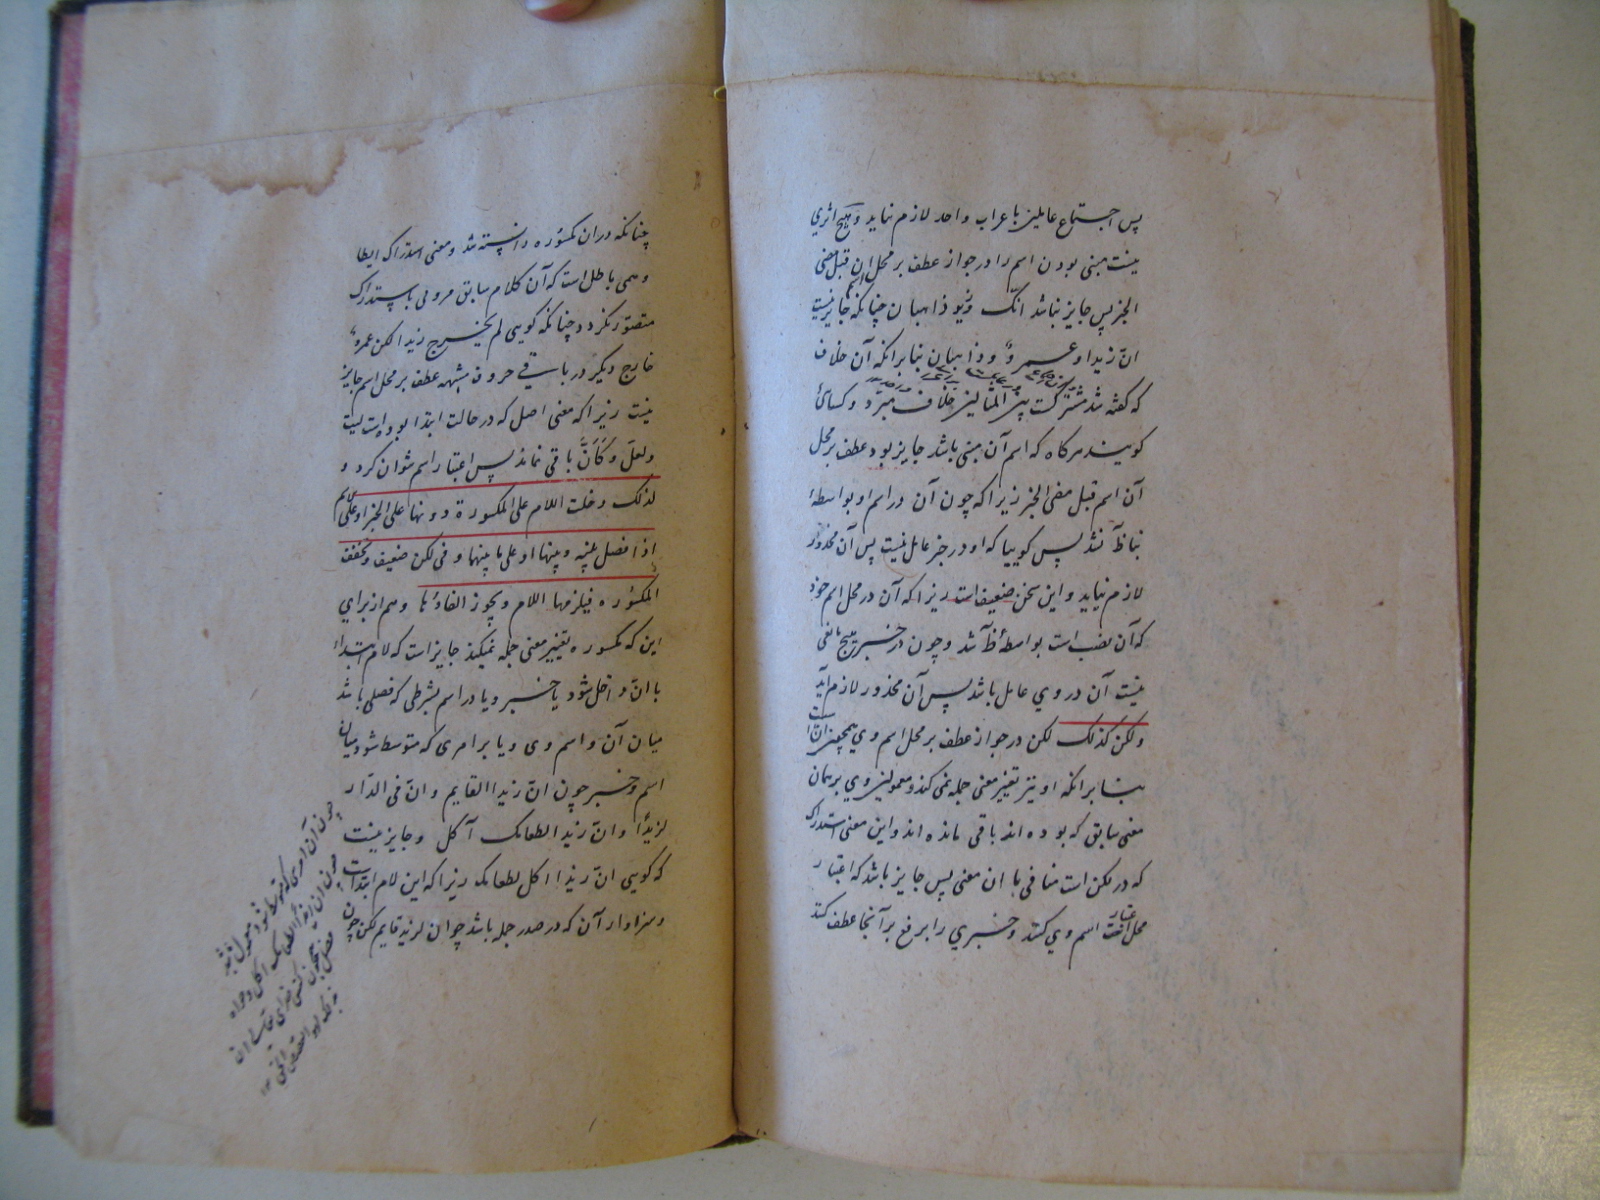 پس اجتماع عاملین باعراب واحد لازم نیاید و هیچ اثری
نیست مبنی بودن اسم را در جواز عطف بر محل ان قبل مضی
الخبر پس جایز نباشد انک وزید ذاهبان چنانکه جایز نیست
انّ زیدا و عمرو ذاهبان بنابرانکه آن خلاف
که گفته شد مشترکست بین المثالین خلاف مبرّد و کسائی
کویند هرکاه که اسم آن مبنی باشد جایز بود عطف بر محل
آن اسم قبل مضی الخبر زیرا که چون آن در اسم او بواسطهٔ
بنا ظاهر نشد پس کوییا که او در خبر عامل نیست پس آن محذور
لازم نیاید و این سخن ضعیف است زیرا که آن در محل اسم خود
که آن نصب است بواسطهٔ ظاهر شد و چون در خبر هیچ مانعی
نیست آن در وی عامل باشد پس آن محذور لازم آید
ولکن کذلک لکن در جواز عطف بر محل اسم وی همچون انّ است
بنابرانکه او نیز تغییر معنی جمله نمی کند و معمولین وی بر همان
معنی سابق که بوده اند باقی مانده اند و این معنی استدراک
که در لکن است منافی با ان معنی نیس جایز باشد که اعتبار
محل اسم وی کنند و خبری را برفع بر آنجا عطف کنند
چنانکه در ان مکسوره دانسته شد و معنی استدراک ایطا
وهمی باطل است که آن کلام سابق مروی باستدراک
متصوّر نکردد چنانکه کویی لم یخرج زید لکن عمروا
خارج و دیگر در باقی حروف مشبهه عطف بر محل اسم جایز
نیست زیرا که معنی اصل که در حالت ابتدا بوده است لیت
ولعلّ وکأنّ باقی نماند پس اعتبار اسم نتوان کرد و
لذلک دخلت اللام علی المکسورة دونها علی الخبر او علی الاسم
اذا فصل بینه وبینها او علی ما بینهما وفی لکن ضعیف وتخفف
المکسوره فیلزمها اللام ویجوز الغاؤها و هم از برای
این که مکسوره تغییر معنی جمله نمیکند جایز است که لام ابتدا
با انّ داخل شود یا خبر و یا در اسم بشرطی که فصلی باشد
میان آن و اسم وی و یا بر امری که متوسط شود میان
اسم و خبر چون انّ زیدا لقایم و انّ فی الدّار
لزیدًا و انّ زیدا لطعامک آکل و جایز نیست
که کویی انّ زیدا اکل لطعامک زیرا که این لام ابتداست
و سزاوار آن که در صدر جمله باشد چو ان لزید قایم لکن چون
چون آن امری که متوسط شود معمول خبر
چون ان زیدا لطعامک اکل و خواه